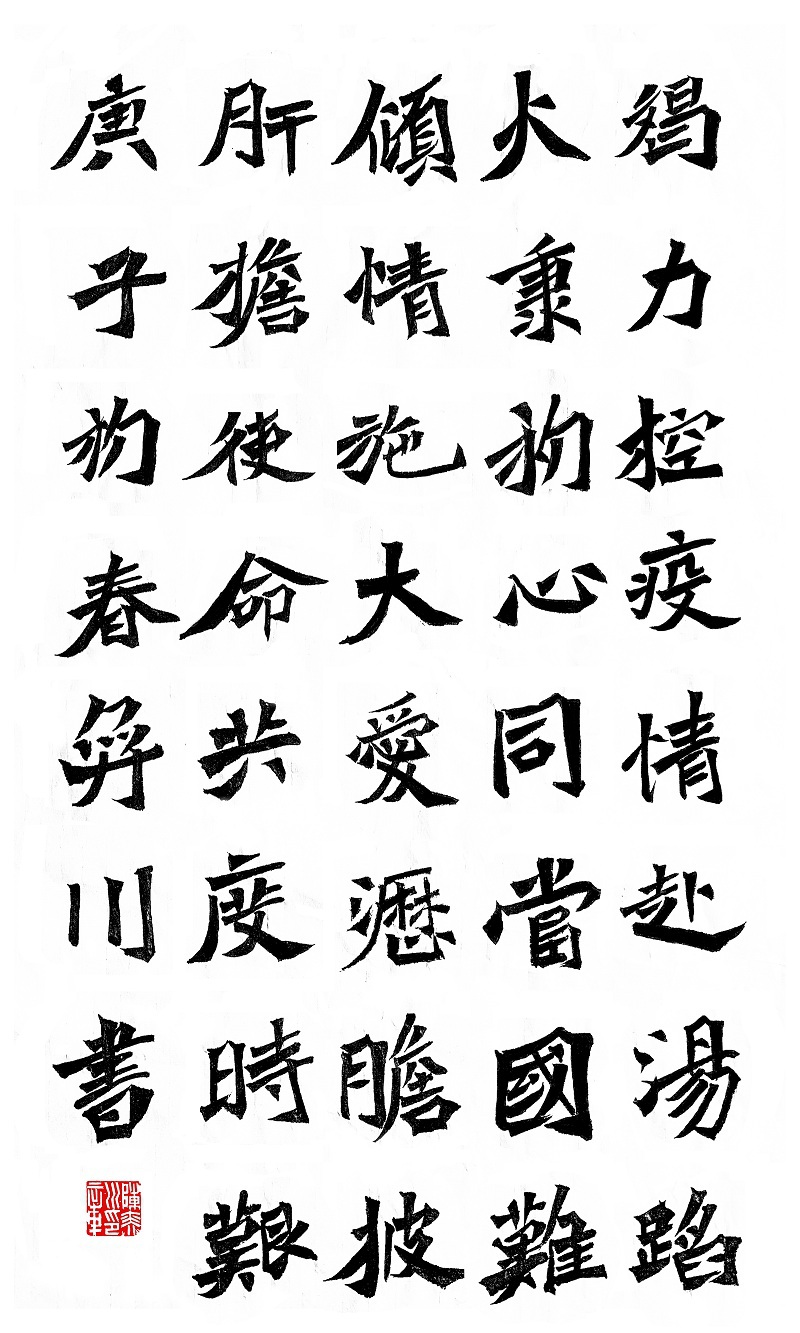 竭力控疫情赴湯蹈
火秉初心同當國難
傾情施大愛瀝膽披
肝擔使命共度時艱
庚子初春川書